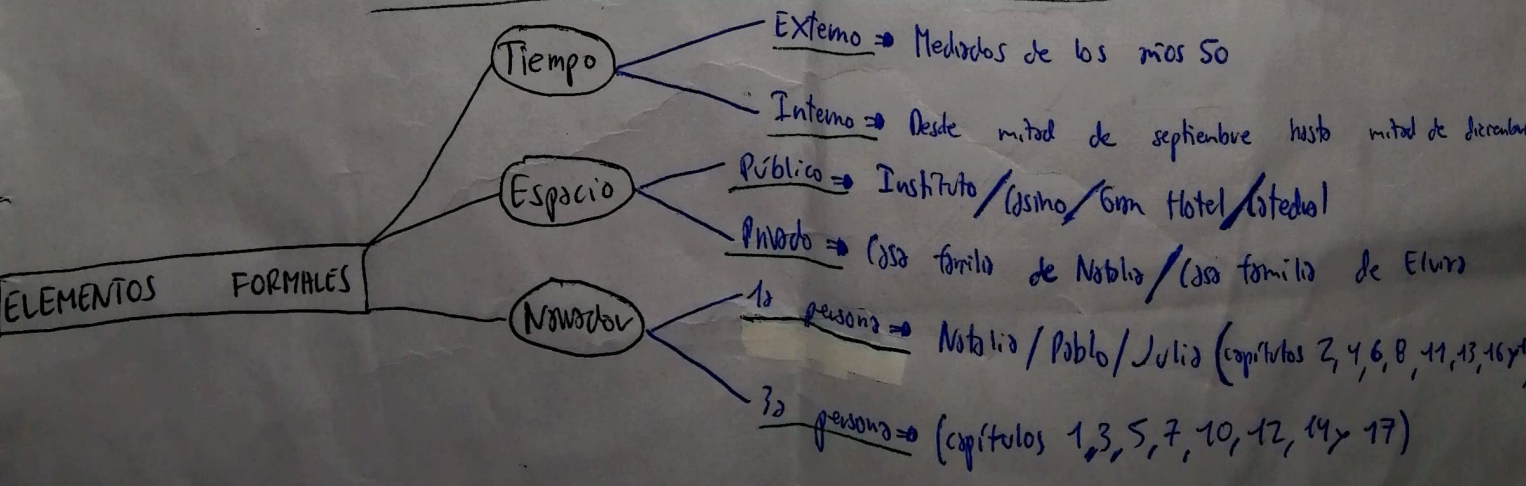 Tiempo
Externo ⇒ Mediados de los años 50
Interno ⇒ Desde mitad de septiembre hasta mitad de diciembre
Espacio
Público ⇒ Instituto/Casino/Gran Hotel/Catedral
Privado ⇒ Casa familia de Natalia/Casa familia de Elvira
ELEMENTOS FORMALES
Narrador
1a persona ⇒ Natalia/Pablo/Julia (capítulos 2,4,6,8,11,13,16 y
3a persona ⇒ (capítulos 1,3,5,7,10,12,14 y 17)